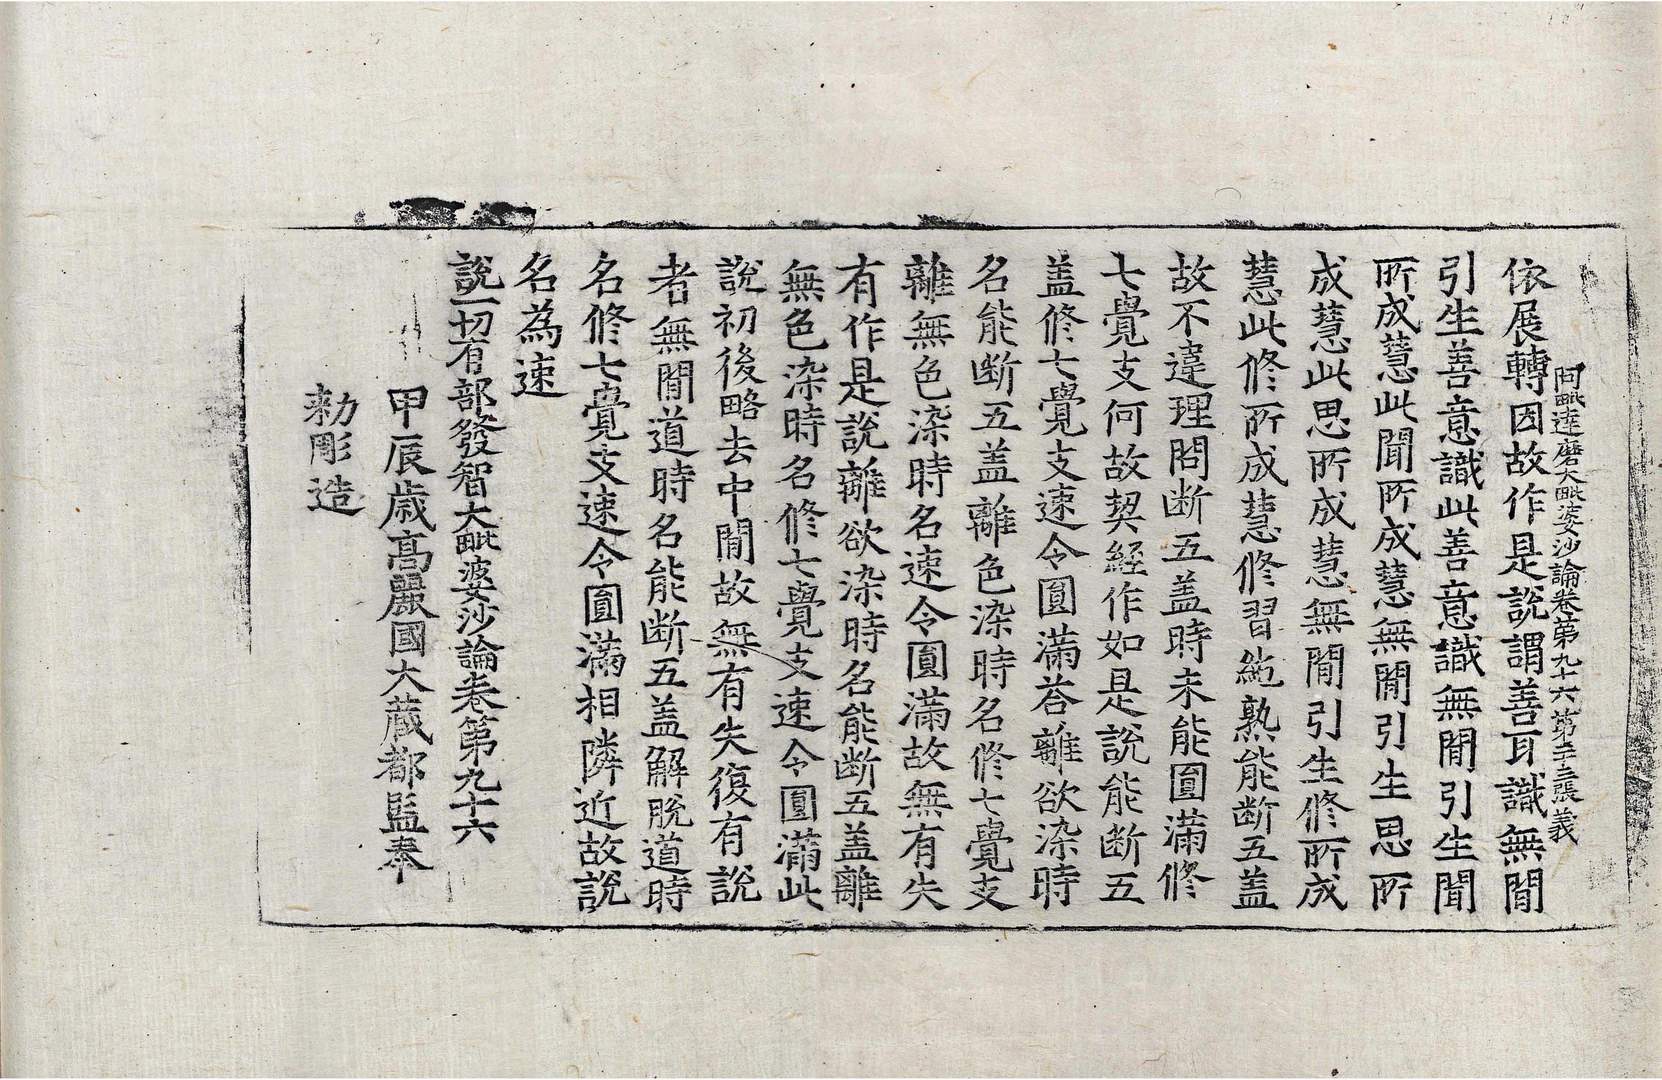 阿毗達磨大毗婆沙論卷第九十六 第二十三張 義
依展轉因故作是說謂善耳識無閒
引生善意識此善意識無閒引生聞
所成慧此聞所成慧無閒引生思所
成慧此思所成慧無閒引生修所成
慧此修所成慧修習純熟能斷五蓋
故不違理問斷五蓋時未能圓滿修
七覺支何故契經作如是說能断五
盖修七覺支速令圓滿荅離欲染時
名能断五盖離色染時名修七覺支
離無色染時名速令圓滿故無有失
有作是說離欲染時名能断五盖離
無色染時名修七覺支速令圓滿此
說初後略去中閒故無有失復有說
者無閒道時名能断五盖解脫道時
名修七覺支速令圓滿相隣近故說
名為速
說一切有部發智大毗婆沙論卷第九十六
甲辰歳高麗國大藏都監奉
勅彫造